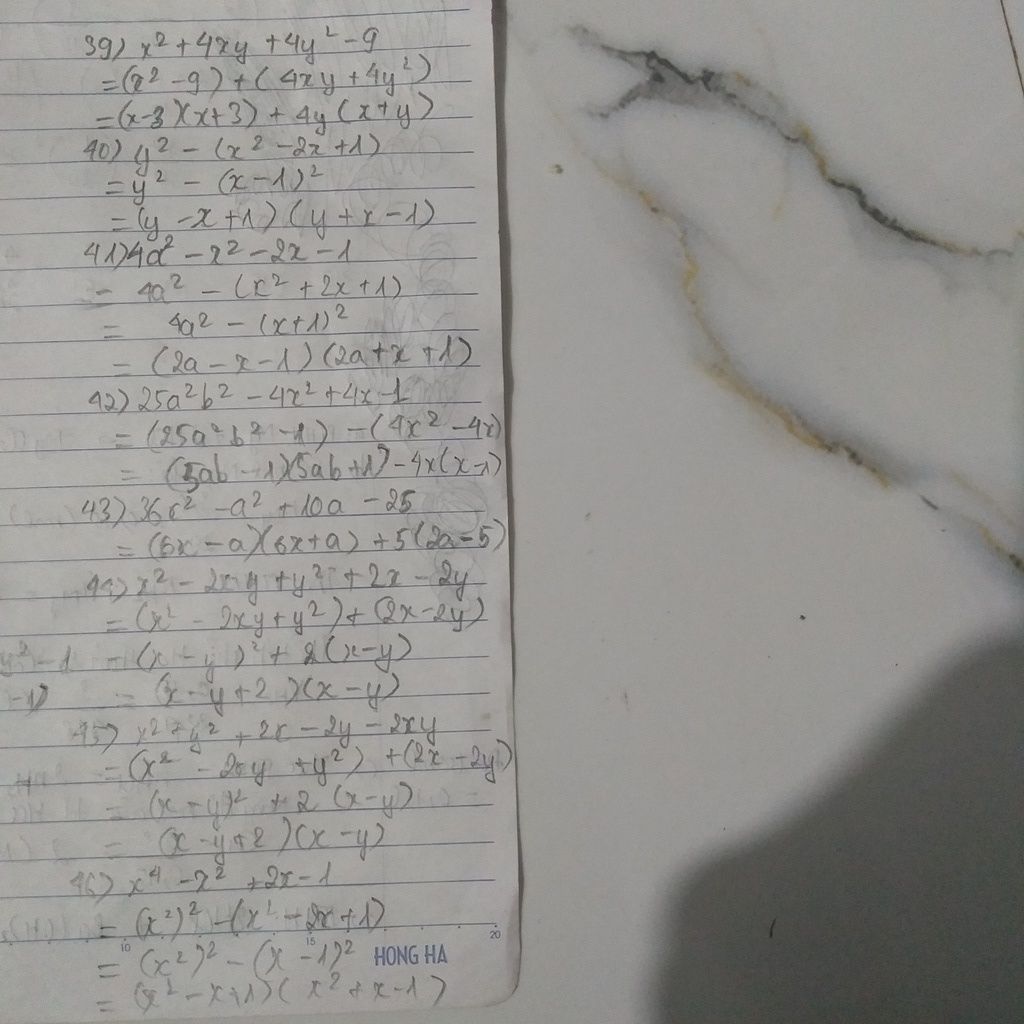 39) x² + 4xy + 4y² - 9
= (x² - 9) + (4xy + 4y²)
= (x-3)(x+3) + 4y(x+y)
40) y² - (x² - 2x + 1)
= y² - (x-1)²
= (y - x + 1)(y + x - 1)
41) 4a² - x² - 2x - 1
= 4a² - (x² + 2x + 1)
= 4a² - (x+1)²
= (2a - x - 1)(2a + x + 1)
42) 25a²b² - 4x² + 4x - 1
= (25a²b² - 1) - (4x² - 4x)
= (5ab - 1)(5ab + 1) - 4x(x-1)
43) 36x² - a² + 10a - 25
= (6x - a)(6x + a) + 5(2a - 5)
44) x² - 2xy + y² + 2x - 2y
= (x² - 2xy + y²) + (2x - 2y)
y² - 1 = (x - y)² + 2(x-y)
-1) = (x - y + 2)(x - y)
45) x² + y² + 2x - 2y - 2xy
= (x² - 2xy + y²) + (2x - 2y)
= (x + y)² + 2(x-y)
= (x - y + 2)(x - y)
46) x⁴ - x² + 2x - 1
= (x²)² - (x² - 2x + 1)
10 15 20
= (x²)² - (x - 1)² HONG HA
= (x² - x + 1)(x² + x - 1)